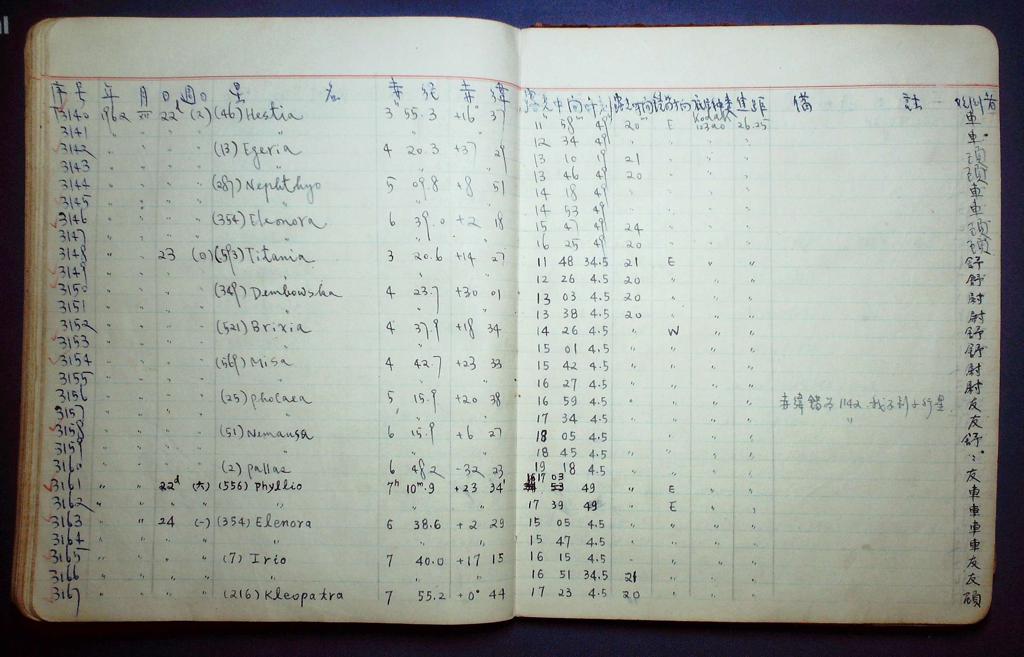 序号 年 月 日 週日 星 名 赤 经 赤 纬 露光中间时刻 露光时间 镜筒方向 底片种类 焦距 備 註 观测者
3140 1962 XII 22d (六) (46) Hestia 3h 55.3m +16° 37' 11h 58m 49s 20m E Kodak 103a0 26.25 車
3141 " " " " 12 34 49 " " " " 車
3142 " " " (13) Egeria 4 20.3 +37 29 13 10 19 21 " " "
3143 " " " " 13 46 49 20 " " "
3144 " " " (287) Nephthyo 5 09.8 +8 51 14 18 49 " " " " 車
3145 " " " " 14 53 49 " " " " 車
3146 " " " (354) Eleonora 6 39.0 +2 18 15 47 49 24 " " "
3147 " " " " 16 25 49 20 " " "
3148 " " 23 (日) (593) Titania 3 20.6 +14 27 11 48 34.5 21 E " " 舒
3149 " " " " 12 26 4.5 20 " " " 舒
3150 " " " (349) Dembowska 4 23.7 +30 01 13 03 4.5 20 " " " 尉
3151 " " " " 13 38 4.5 20 " " " 尉
3152 " " " (521) Brixia 4 37.9 +18 34 14 26 4.5 " W " " 舒
3153 " " " " 15 01 4.5 " " " " 舒
3154 " " " (569) Misa 4 42.7 +23 33 15 42 4.5 " " " " 尉
3155 " " " " 16 27 4.5 " " " " 尉
3156 " " " (25) phocaea 5 15.9 +20 38 16 59 4.5 " " " " 赤纬错了 1142 找不到小行星 友
3157 " " " " 17 34 4.5 " " " " " 友
3158 " " " (51) Nemausa 6 15.9 +6 27 18 05 4.5 " " " " 舒
3159 " " " " 18 45 4.5 " " " " "
3160 " " " (2) pallas 6 48.2 -32 23 19 18 4.5 " " " " 友
3161 " " 22d (六) (556) phyllio 7h 10m.9 +23 34' 17 03 49 " E " " 車
3162 " " " " 17 39 49 " E " " 車
3163 " " 24 (一) (354) Elenora 6 38.6 +2 29 15 05 4.5 " " " " 車
3164 " " " " 15 47 4.5 " " " " 車
3165 " " " (7) Irio 7 40.0 +17 15 16 15 4.5 " " " " 友
3166 " " " " 16 51 34.5 21 " " " 友
3167 " " " (216) Kleopatra 7 55.2 +0° 44 17 23 4.5 20 " " "